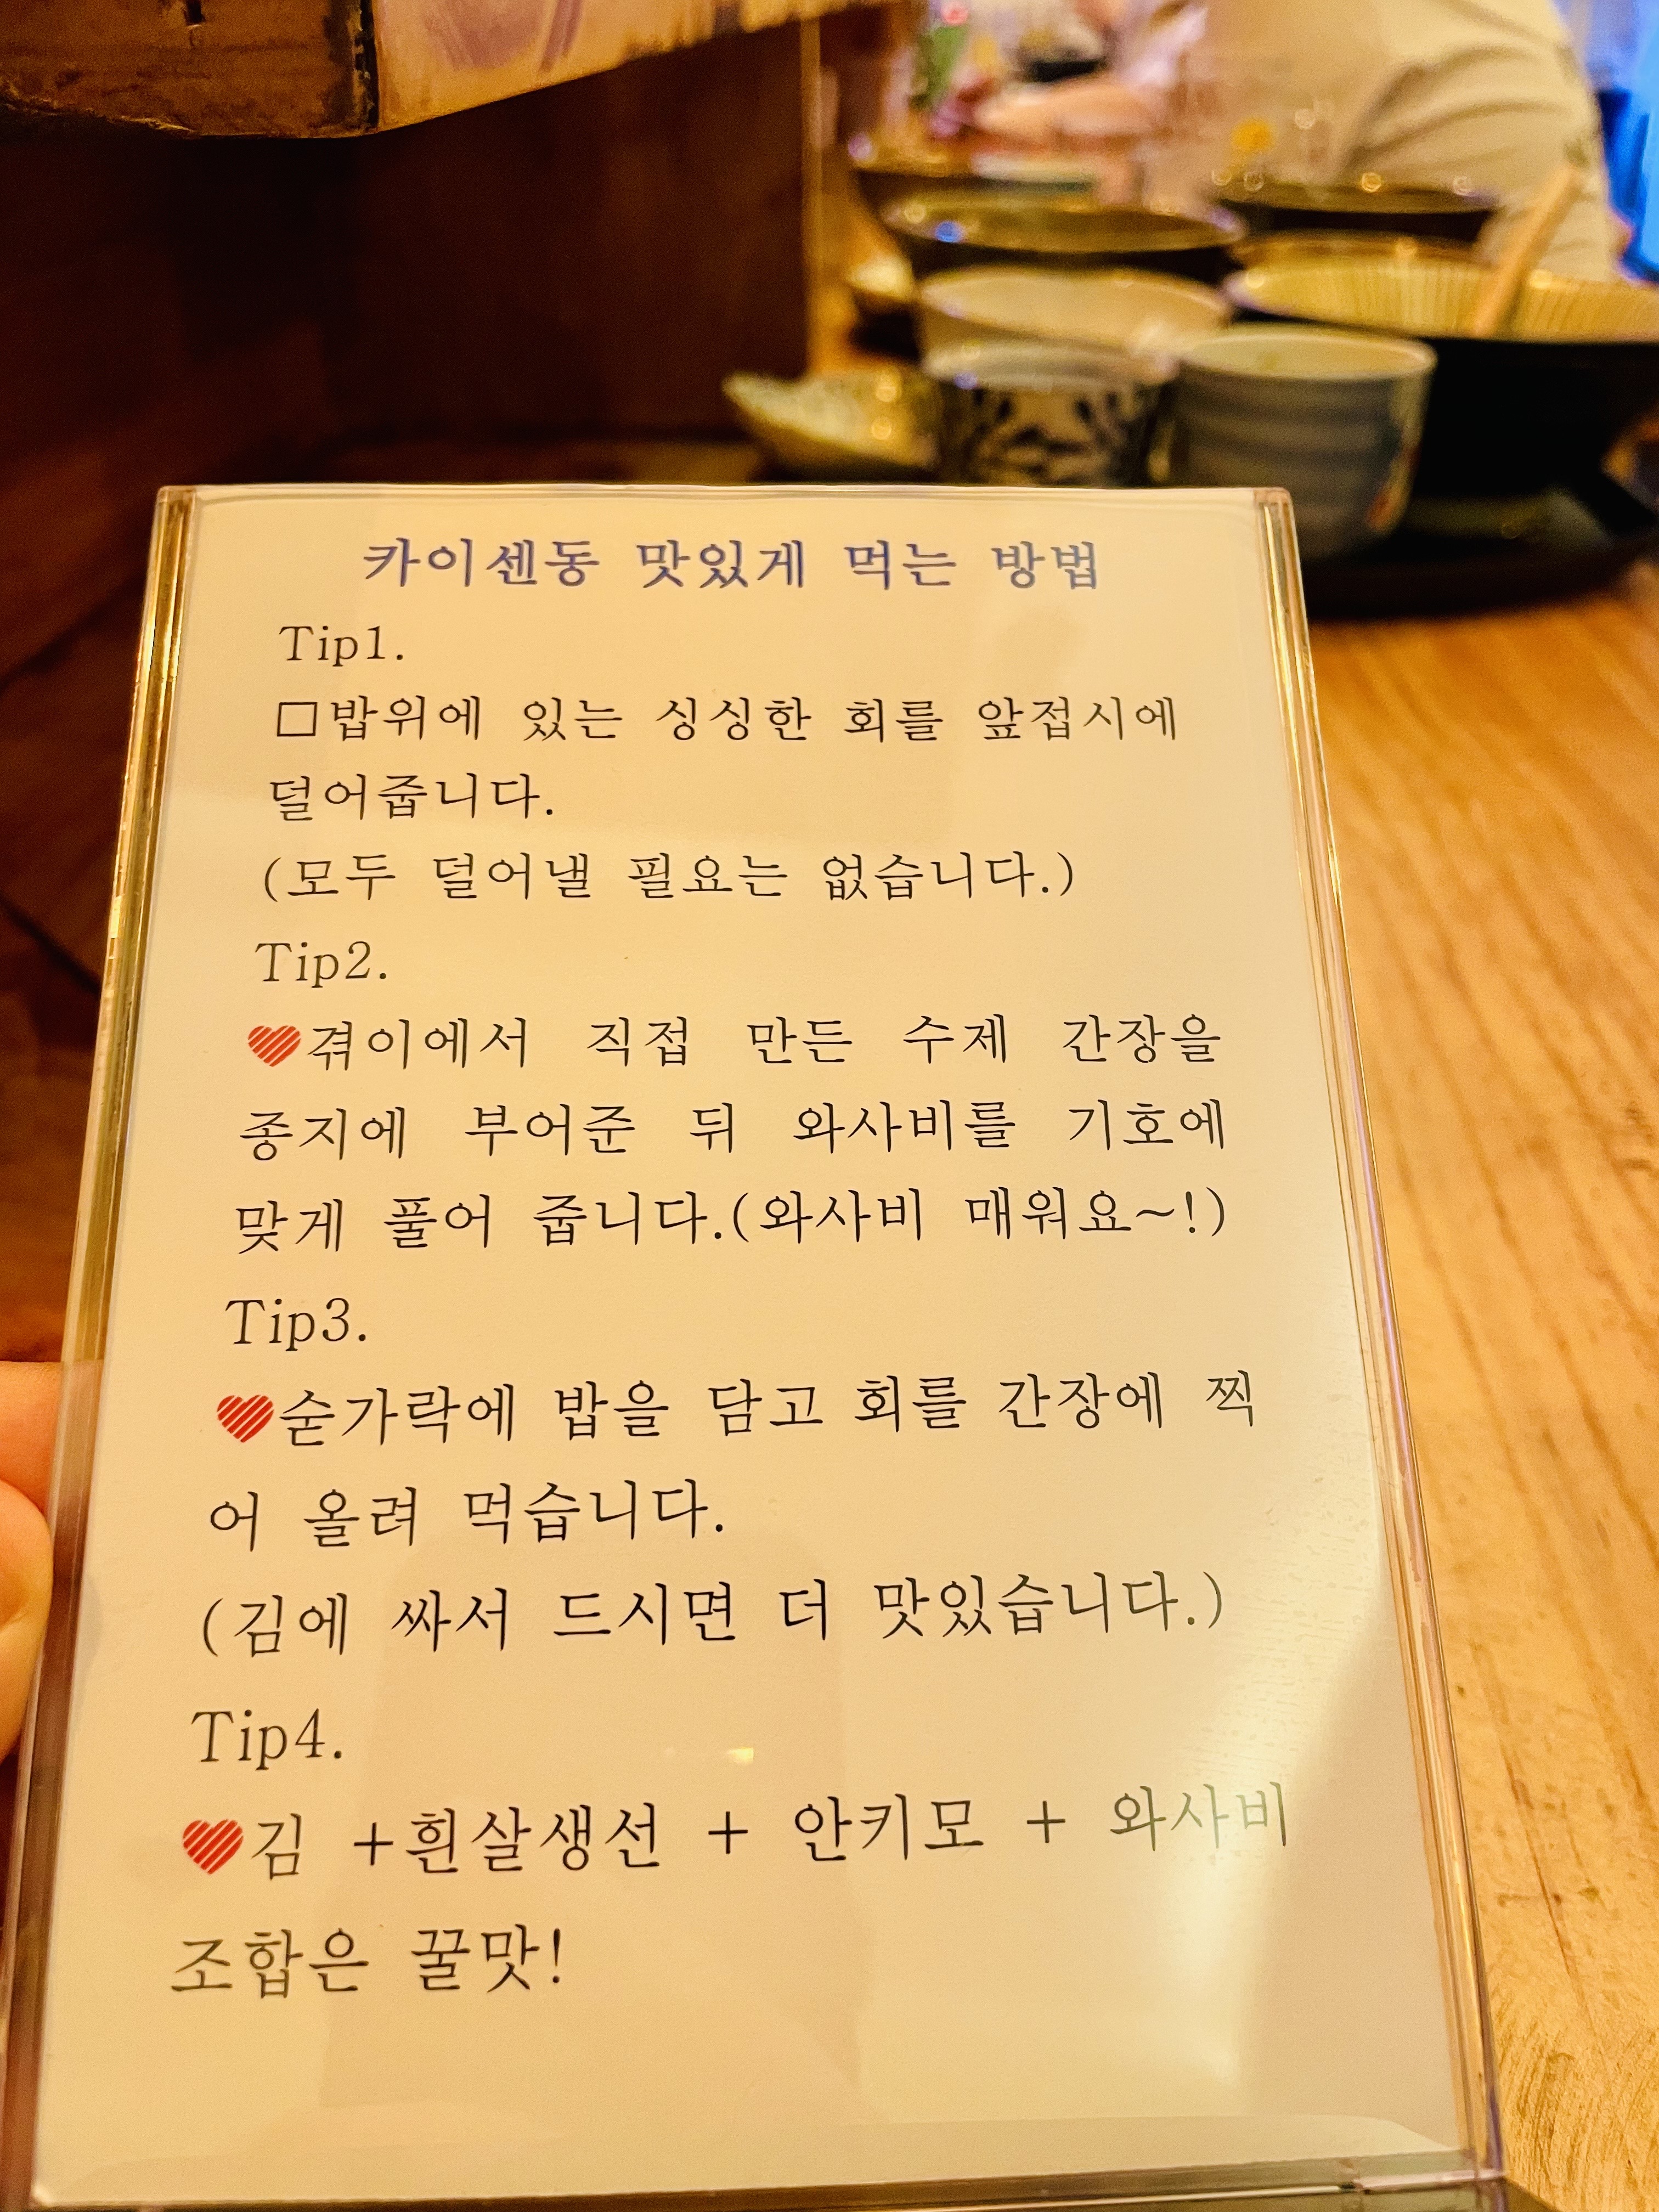 카이센동 맛있게 먹는 방법
Tip1.
□밥위에 있는 싱싱한 회를 앞접시에
덜어줍니다.
(모두 덜어낼 필요는 없습니다.)
Tip2.
♥겪이에서 직접 만든 수제 간장을
종지에 부어준 뒤 와사비를 기호에
맞게 풀어 줍니다.(와사비 매워요~!)
Tip3.
♥숟가락에 밥을 담고 회를 간장에 찍
어 올려 먹습니다.
(김에 싸서 드시면 더 맛있습니다.)
Tip4.
♥김 +흰살생선 + 안키모 + 와사비
조합은 꿀맛!